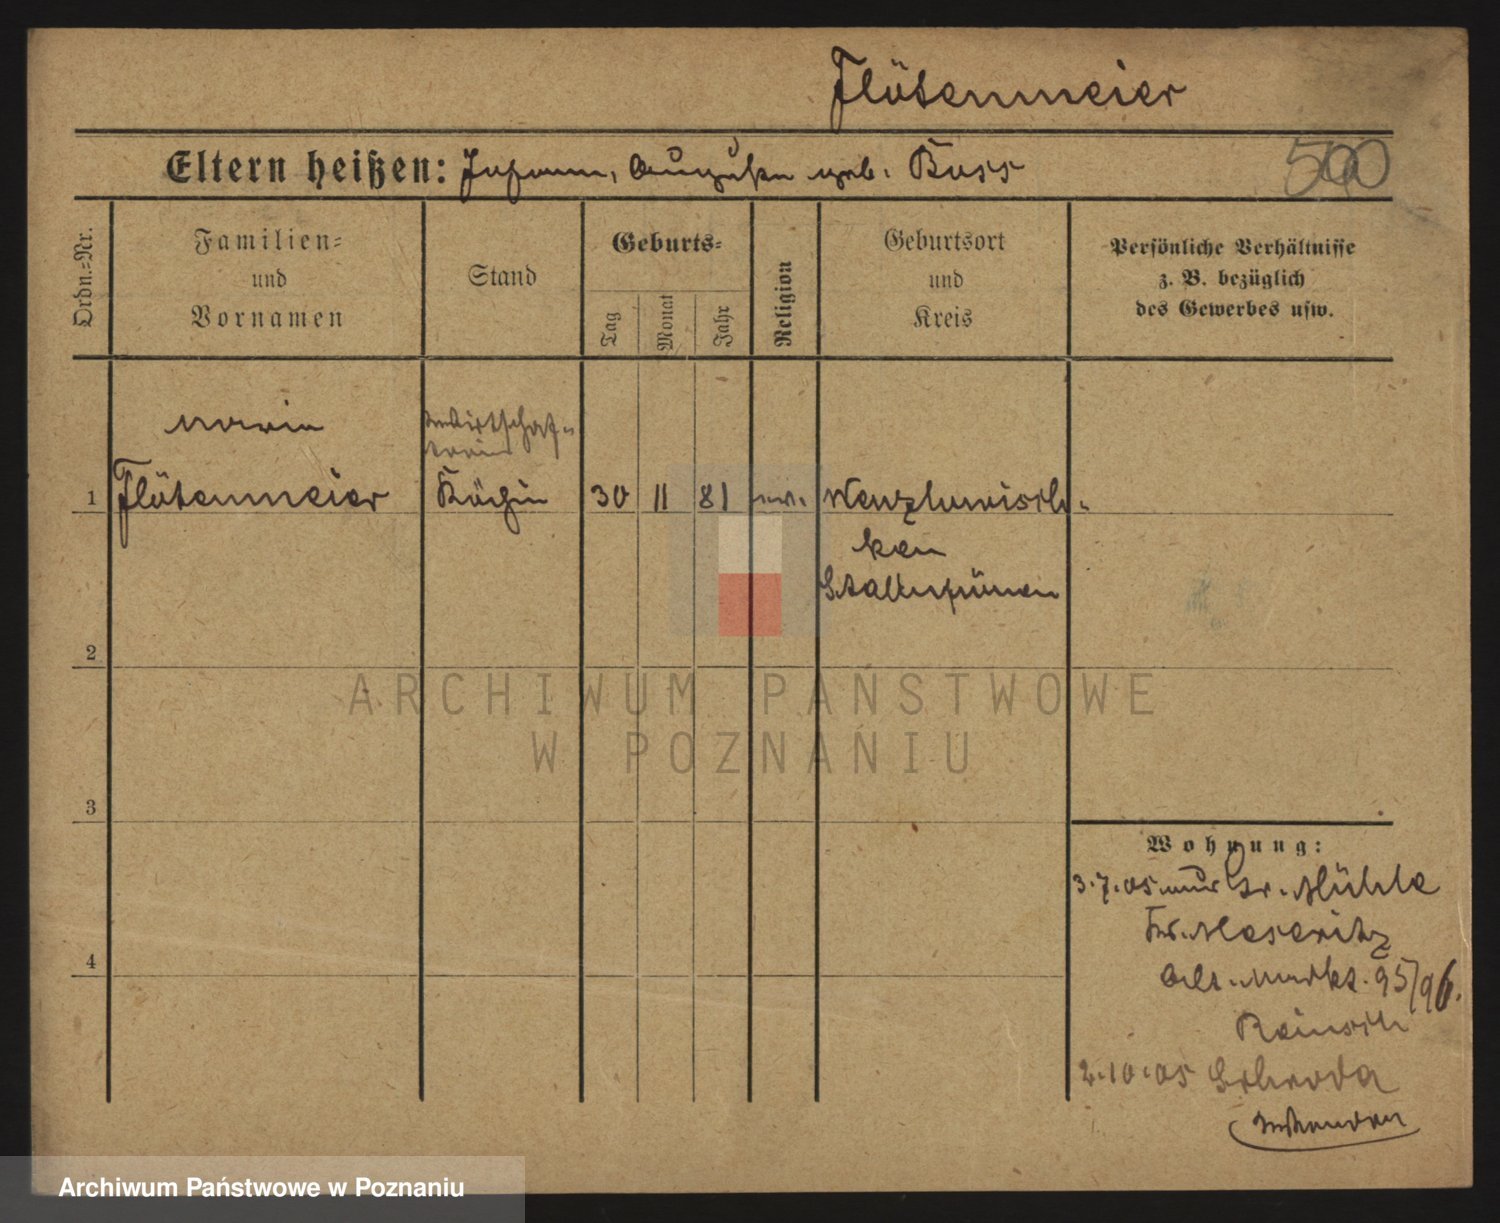 Flötenmeier
Eltern heißen: Johann, Auguste geb. Buss
500
Ordn.-Nr.
Familien-
und
Vornamen
Stand
Geburts-
Tag
Monat
Jahr
Religion
Geburtsort
und
Kreis
Persönliche Verhältnisse
z. B. bezüglich
des Gewerbes usw.
Wirtschaf-
terin
1
Flötenmeier
Köchin
30
11
81
ev.
ken
Stallupönen
2
3
4
Wohnung:
3.7.05 aus Gr. Mühle
Kr. Meseritz
Alt. Markt. 95/96.
2.10.05 Schroda
ARCHIWUM PAŃSTWOWE
W POZNANIU
Archiwum Państwowe w Poznaniu